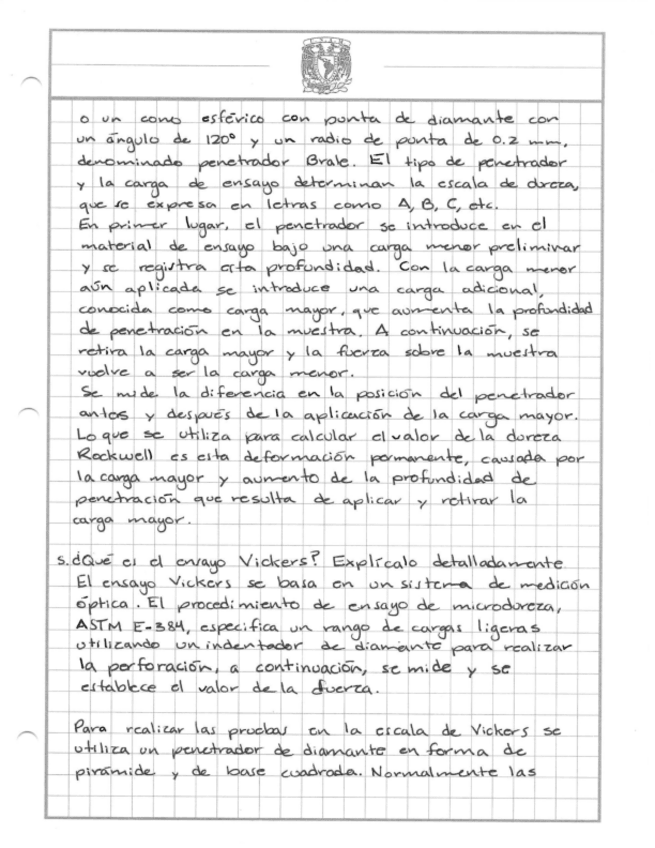 o un cono esférico con punta de diamante con
un ángulo de 120° y un radio de punta de 0.2 mm,
denominado penetrador Brale. El tipo de penetrador
y la carga de ensayo determinan la escala de dureza,
que se expresa en letras como A, B, C, etc.
En primer lugar, el penetrador se introduce en el
material de ensayo bajo una carga menor preliminar
y se registra esta profundidad. Con la carga menor
aún aplicada se introduce una carga adicional,
conocida como carga mayor, que aumenta la profundidad
de penetración en la muestra. A continuación, se
retira la carga mayor y la fuerza sobre la muestra
vuelve a ser la carga menor.
Se mide la diferencia en la posición del penetrador
antes y después de la aplicación de la carga mayor.
Lo que se utiliza para calcular el valor de la dureza
Rockwell es esta deformación permanente, causada por
la carga mayor y aumento de la profundidad de
penetración que resulta de aplicar y retirar la
carga mayor.
5. ¿Qué es el ensayo Vickers? Explícalo detalladamente
El ensayo Vickers se basa en un sistema de medición
óptica. El procedimiento de ensayo de microdureza,
ASTM E-384, especifica un rango de cargas ligeras
utilizando un indentador de diamante para realizar
la perforación, a continuación, se mide y se
establece el valor de la fuerza.
Para realizar las pruebas en la escala de Vickers se
utiliza un penetrador de diamante en forma de
pirámide y de base cuadrada. Normalmente las